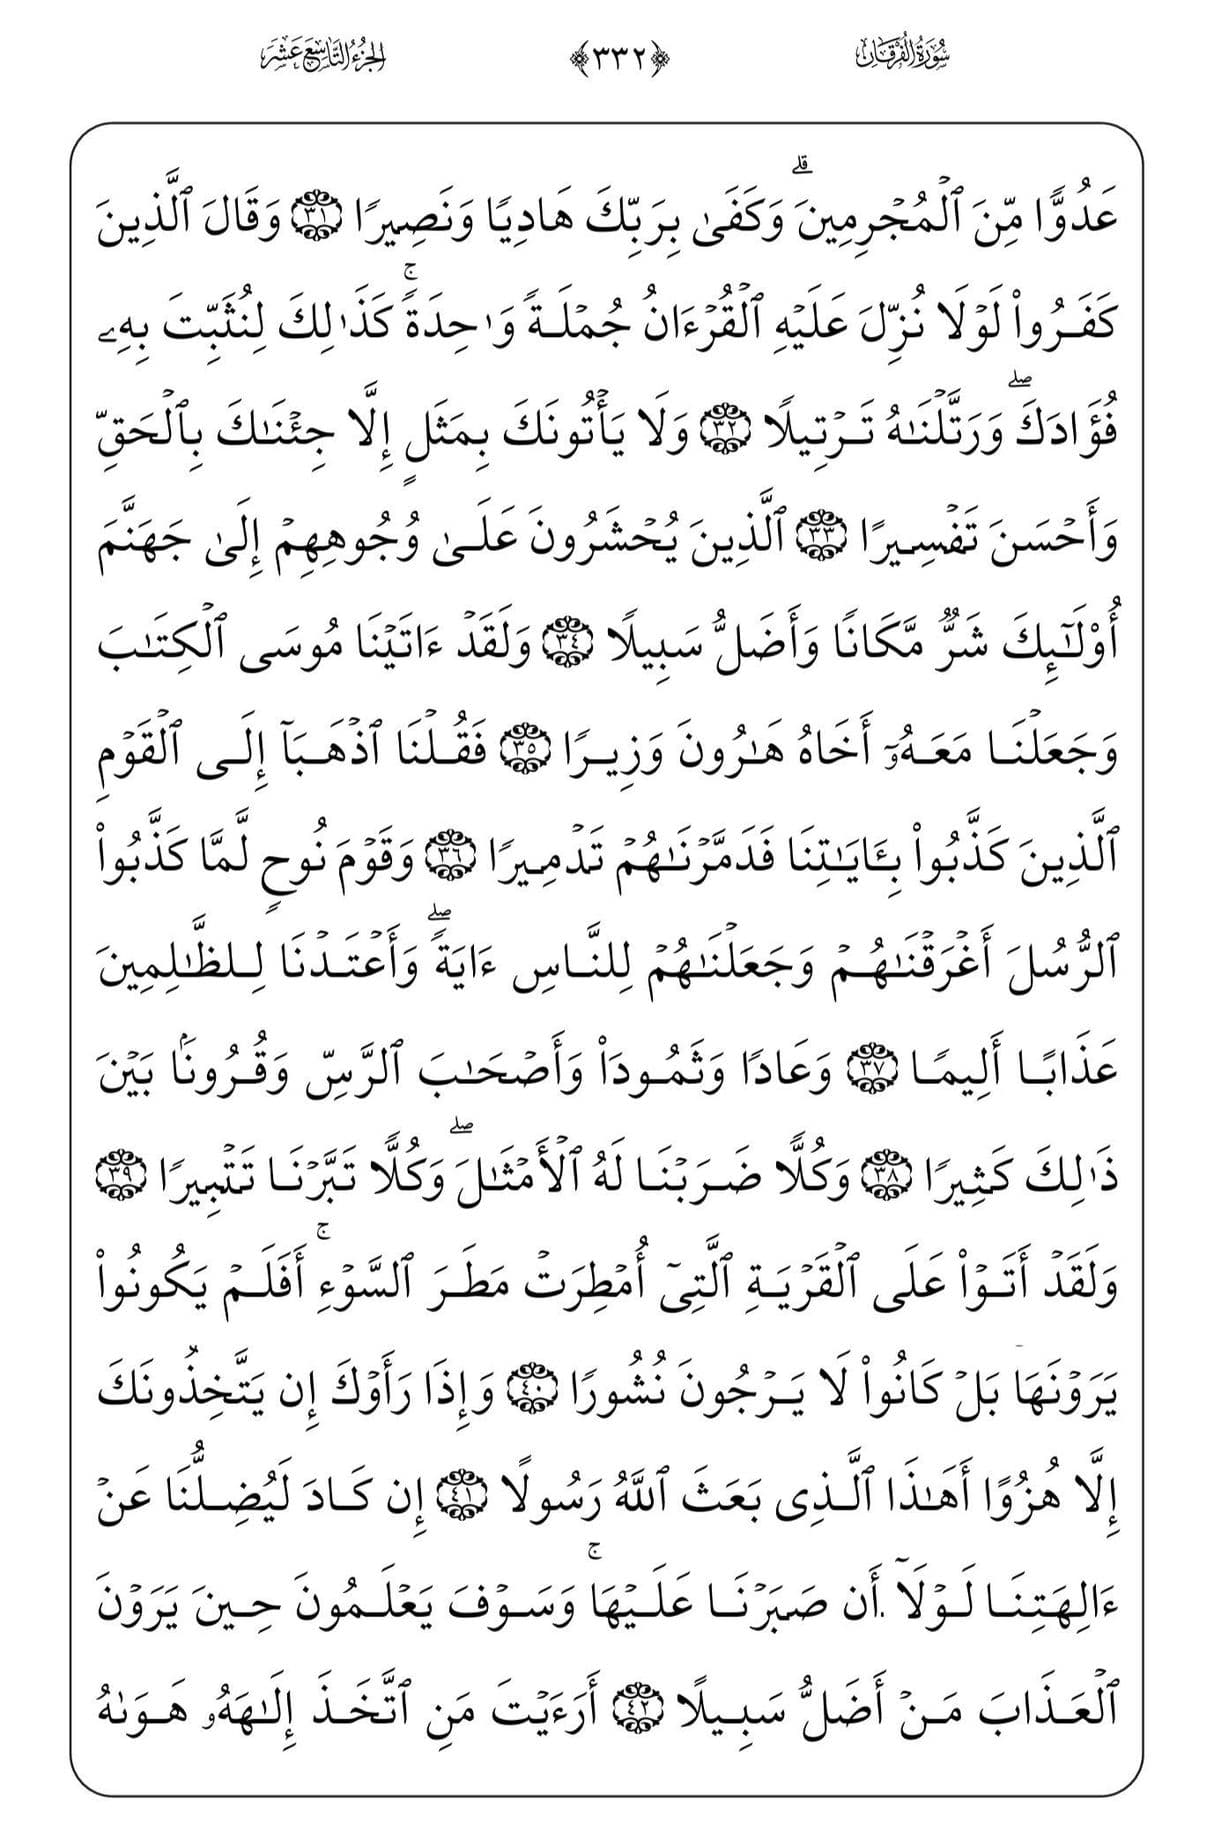 سُورَةُ الْفُرْقَان ﴿٣٣٢﴾ الجُزْءُ التَّاسِعَ عَشَر
عَدُوًّا مِّنَ ٱلْمُجْرِمِينَ ۗ وَكَفَىٰ بِرَبِّكَ هَادِيًا وَنَصِيرًا ٣١ وَقَالَ ٱلَّذِينَ
كَفَرُوا۟ لَوْلَا نُزِّلَ عَلَيْهِ ٱلْقُرْءَانُ جُمْلَةً وَٰحِدَةً ۚ كَذَٰلِكَ لِنُثَبِّتَ بِهِۦ
فُؤَادَكَ ۖ وَرَتَّلْنَـٰهُ تَرْتِيلًا ٣٢ وَلَا يَأْتُونَكَ بِمَثَلٍ إِلَّا جِئْنَـٰكَ بِٱلْحَقِّ
وَأَحْسَنَ تَفْسِيرًا ٣٣ ٱلَّذِينَ يُحْشَرُونَ عَلَىٰ وُجُوهِهِمْ إِلَىٰ جَهَنَّمَ
أُو۟لَـٰٓئِكَ شَرٌّ مَّكَانًا وَأَضَلُّ سَبِيلًا ٣٤ وَلَقَدْ ءَاتَيْنَا مُوسَى ٱلْكِتَـٰبَ
وَجَعَلْنَا مَعَهُۥٓ أَخَاهُ هَـٰرُونَ وَزِيرًا ٣٥ فَقُلْنَا ٱذْهَبَآ إِلَى ٱلْقَوْمِ
ٱلَّذِينَ كَذَّبُوا۟ بِـَٔايَـٰتِنَا فَدَمَّرْنَـٰهُمْ تَدْمِيرًا ٣٦ وَقَوْمَ نُوحٍ لَّمَّا كَذَّبُوا۟
ٱلرُّسُلَ أَغْرَقْنَـٰهُمْ وَجَعَلْنَـٰهُمْ لِلنَّاسِ ءَايَةً ۖ وَأَعْتَدْنَا لِلظَّـٰلِمِينَ
عَذَابًا أَلِيمًا ٣٧ وَعَادًا وَثَمُودَا۟ وَأَصْحَـٰبَ ٱلرَّسِّ وَقُرُونًۢا بَيْنَ
ذَٰلِكَ كَثِيرًا ٣٨ وَكُلًّا ضَرَبْنَا لَهُ ٱلْأَمْثَـٰلَ ۖ وَكُلًّا تَبَّرْنَا تَتْبِيرًا ٣٩
وَلَقَدْ أَتَوْا۟ عَلَى ٱلْقَرْيَةِ ٱلَّتِىٓ أُمْطِرَتْ مَطَرَ ٱلسَّوْءِ ۚ أَفَلَمْ يَكُونُوا۟
يَرَوْنَهَا بَلْ كَانُوا۟ لَا يَرْجُونَ نُشُورًا ٤٠ وَإِذَا رَأَوْكَ إِن يَتَّخِذُونَكَ
إِلَّا هُزُوًا أَهَـٰذَا ٱلَّذِى بَعَثَ ٱللَّهُ رَسُولًا ٤١ إِن كَادَ لَيُضِلُّنَا عَنْ
ءَالِهَتِنَا لَوْلَآ أَن صَبَرْنَا عَلَيْهَا ۚ وَسَوْفَ يَعْلَمُونَ حِينَ يَرَوْنَ
ٱلْعَذَابَ مَنْ أَضَلُّ سَبِيلًا ٤٢ أَرَءَيْتَ مَنِ ٱتَّخَذَ إِلَـٰهَهُۥ هَوَىٰهُ